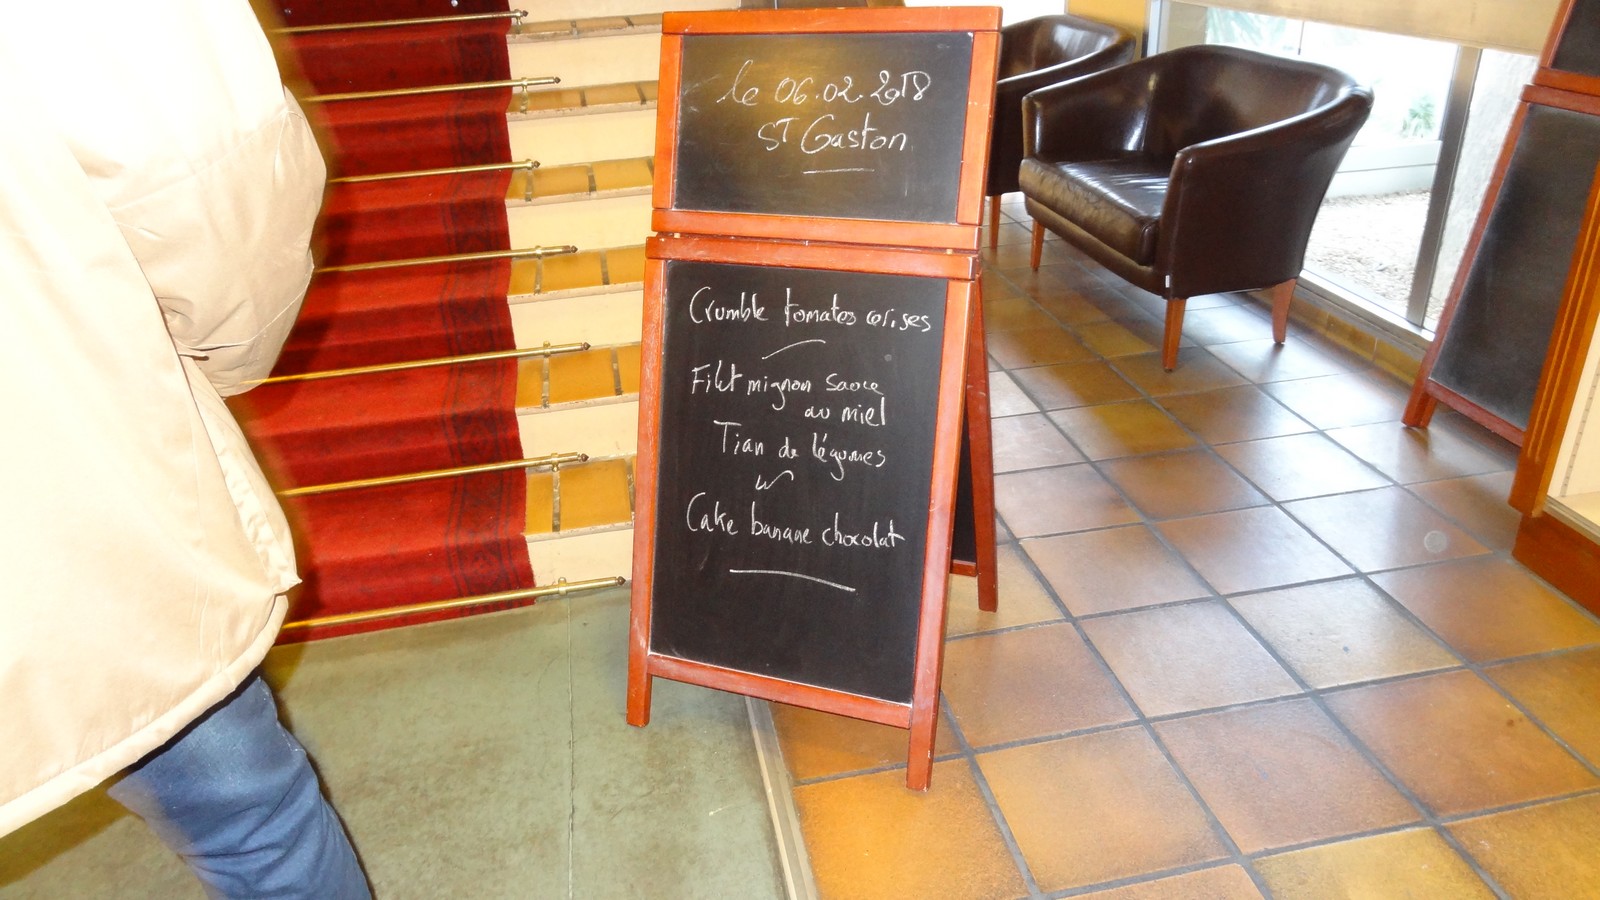 le 06.02.2018
ST Gaston
Crumble tomates cerises
Filet mignon sauce
au miel
Tian de légumes
Cake banane chocolat